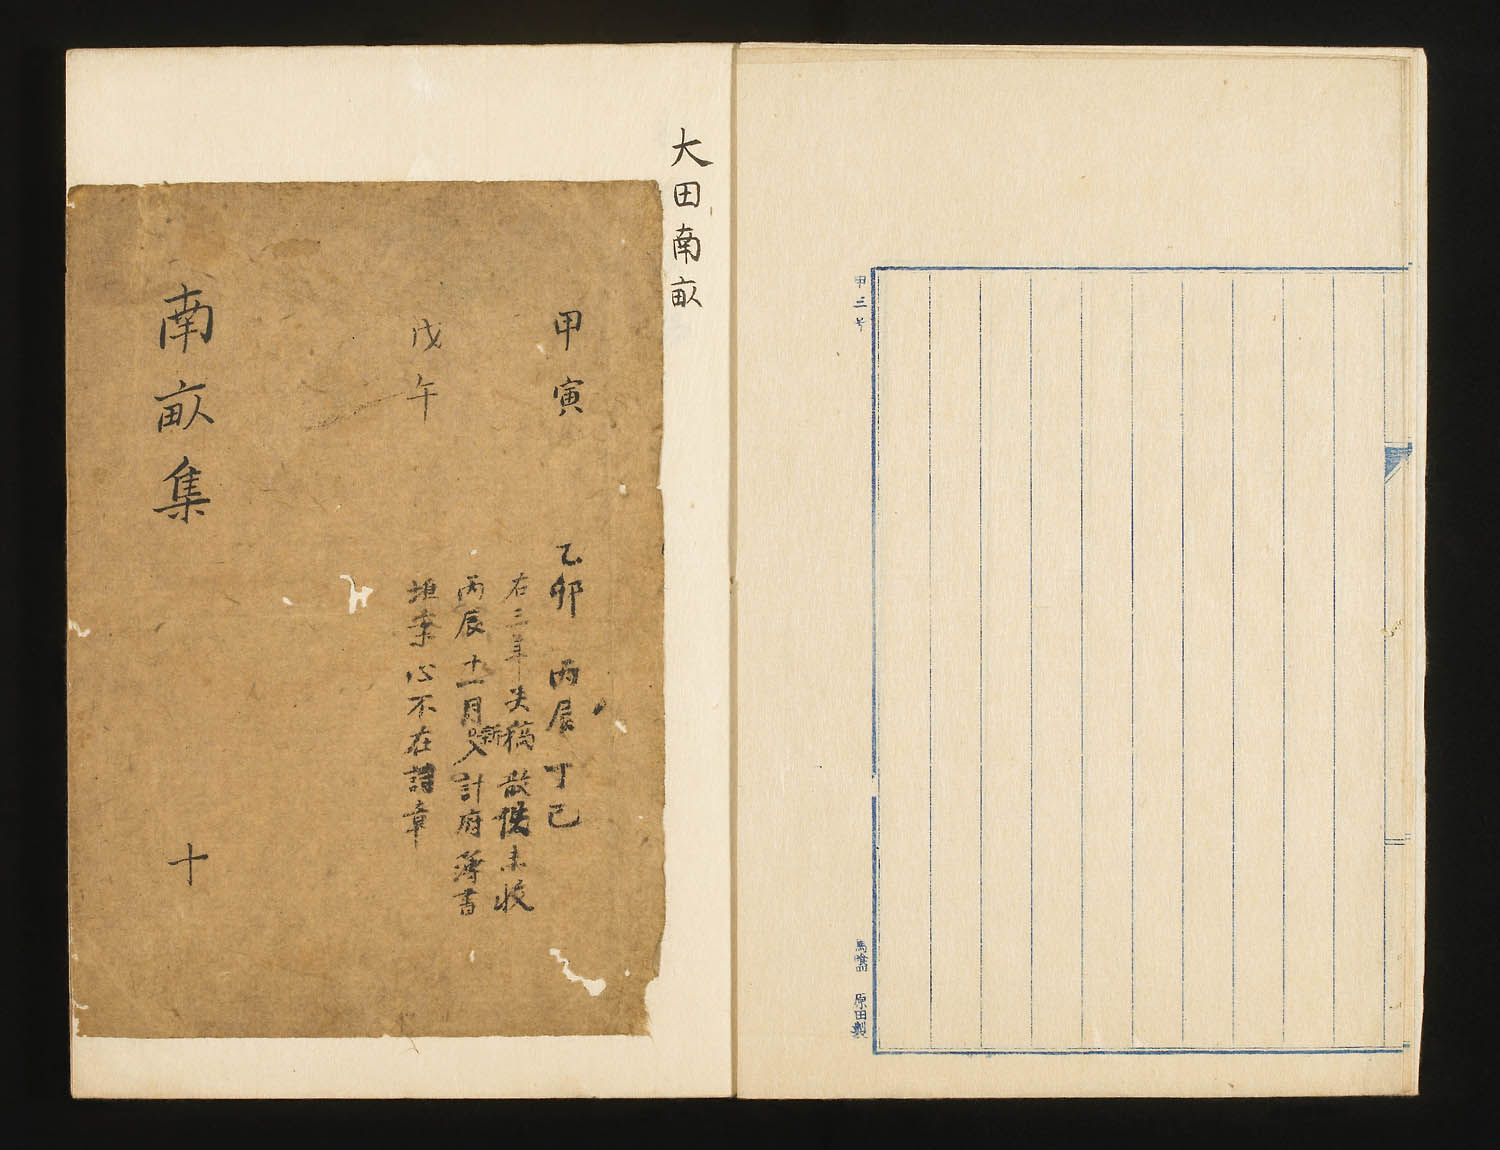 甲三号
馬喰四 原田製
大田南畝
甲寅 乙卯 丙辰 丁巳
右三年失稿散佚未收
丙辰十一月
新
入計府簿書
堆案心不在詩章
戊午
南畝集 十